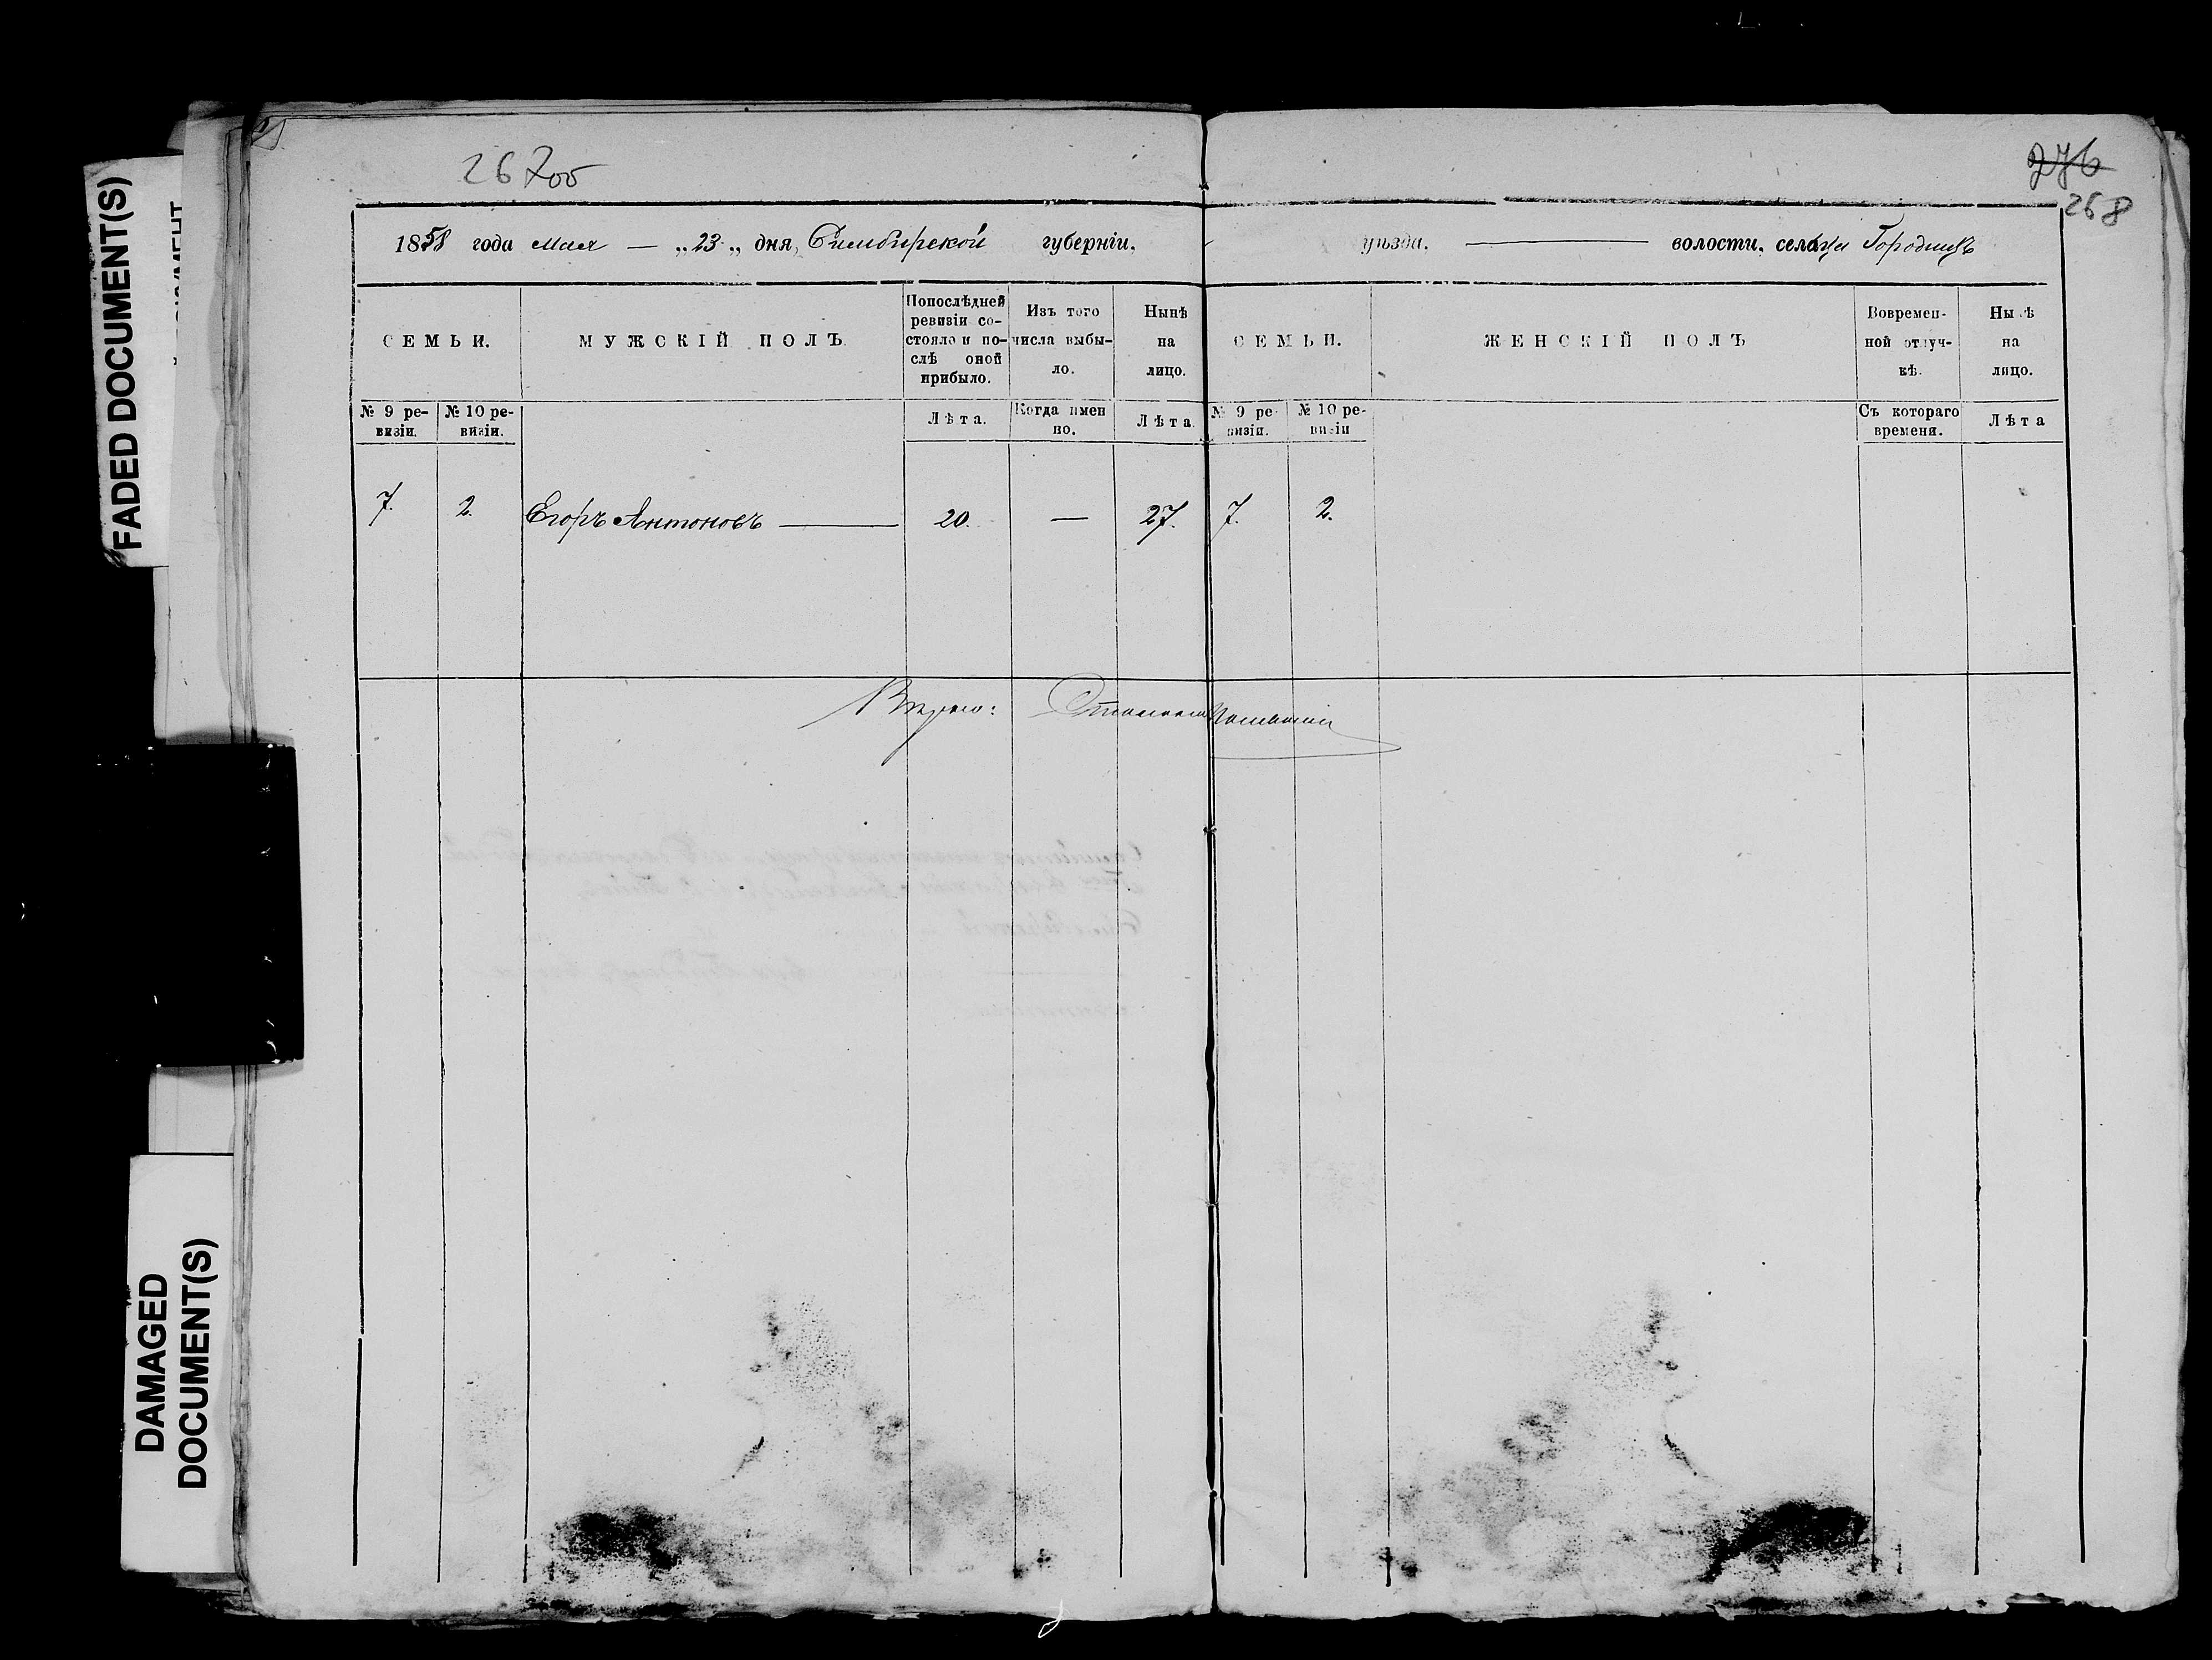 267об
276
268
1858 года мая — „23„ дня, Симбирской губерніи, уѣзда. — волости, сельца Городищъ
СЕМЬИ. МУЖСКІЙ ПОЛЪ. Попослѣдней ревизіи состояло и послѣ оной прибыло. Изъ того числа выбыло. Нынѣ на лицо. СЕМЬИ. ЖЕНСКІЙ ПОЛЪ Вовременной отлучкѣ. Нынѣ на лицо.
№ 9 ревизіи. № 10 ревизіи. Лѣта. Когда именно. Лѣта. № 9 ревизіи. № 10 ревизіи Съ котораго времени. Лѣта
7. 2. Егоръ Антоновъ — 20. — 27. 7. 2.
FADED DOCUMENT(S)
DAMAGED
DOCUMENT(S)